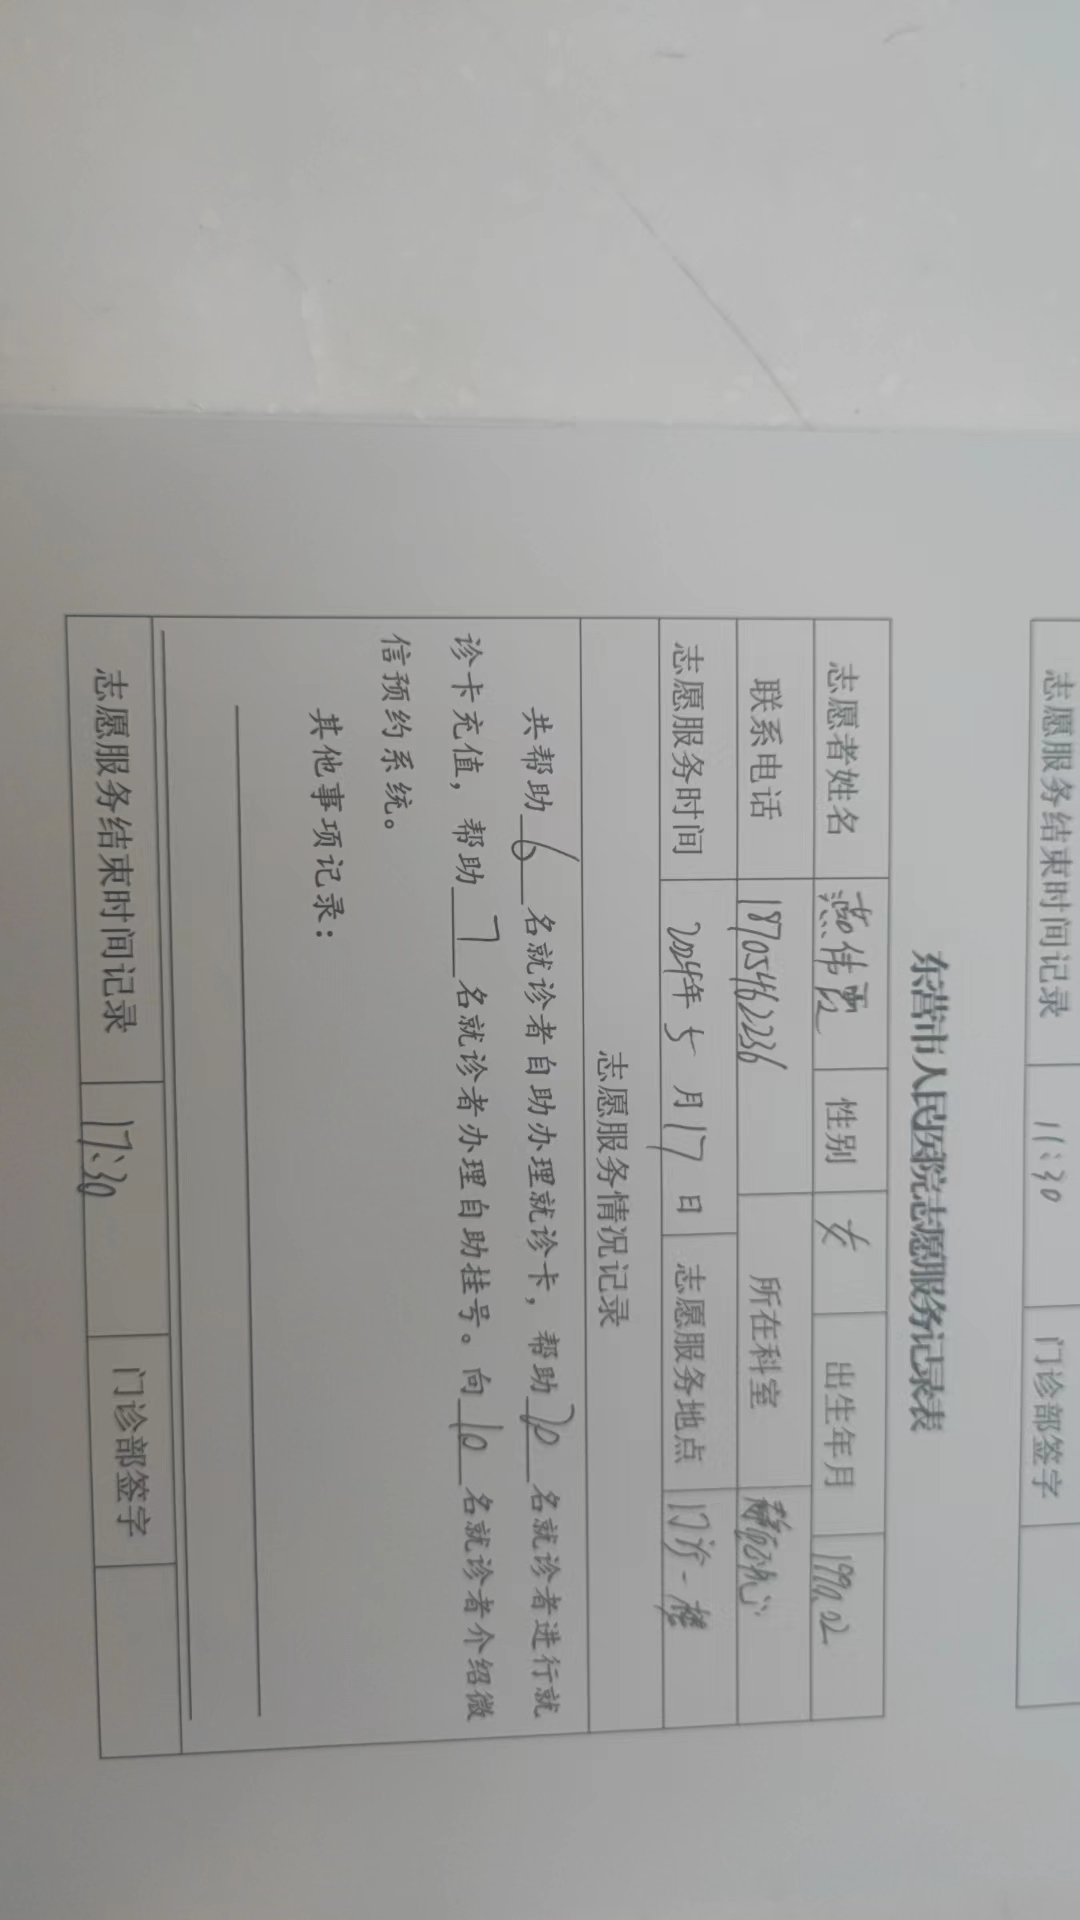 志愿服务结束时间记录 11:30 门诊部签字
东营市人民医院志愿服务记录表
志愿者姓名 燕伟霞 性别 女 出生年月 1990.02
联系电话 18705462236 所在科室
志愿服务时间 2024年 5 月 17 日 志愿服务地点 门诊一楼
志愿服务情况记录
共帮助 6 名就诊者自助办理就诊卡，帮助 20 名就诊者进行就
诊卡充值，帮助 7 名就诊者办理自助挂号。向 10 名就诊者介绍微
信预约系统。
其他事项记录：
志愿服务结束时间记录 17:30 门诊部签字